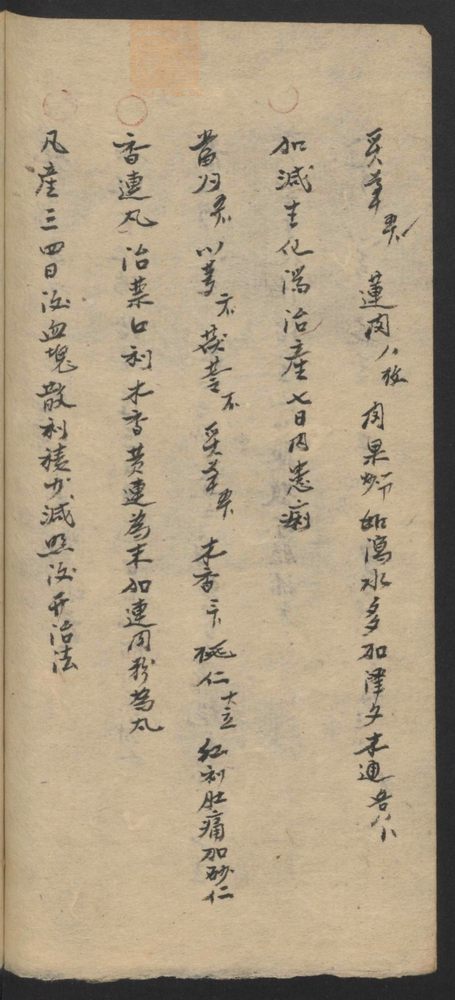 炙草 蓮肉八枚 肉果 如瀉水多加澤夕木通各八分
加減生化湯治產七日内患痢
當归 川芎 茯苓 炙草 木香 桃仁十立 红利肚痛加砂仁
香連丸治禁口利木香黄連為末加連肉粉為丸
凡產三四日後血塊散利積少減照後开治法